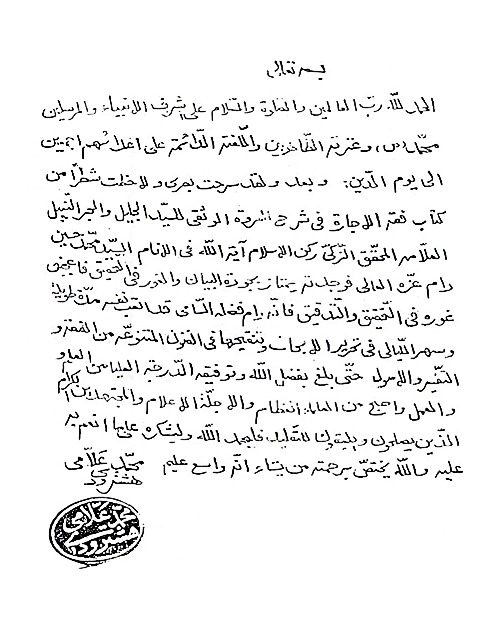 بسمه تعالی
الحمد لله رب العالمین والصلوة والسلام علی اشرف الانبیاء والمرسلین
محمد (ص) وعترته الطاهرین واللعنة الدائمة علی اعدائهم اجمعین
الی یوم الدین: وبعد ولقد سرحت بصری ولاحظت شطراً من
کتاب فقه الاجارة فی شرح العروة الوثقی للسید الجلیل والحبر النبیل
العلامه المحقق الزکی رکن الاسلام آیة الله فی الانام السید محمد حسین
دام عزه العالی فوجدته یمتاز بجودة البیان والغور فی التحقیق فاعجبنی
غوره فی التحقیق والتدقیق فانه دام فضله السامی قد اتعب نفسه مدة طویلة
وسهر اللیالی فی تحریر الابحاث وتنقیحها فی الفنون المتنوعه من الفقه و
التفسیر والاصول حتی بلغ بفضل الله وتوفیقه الدرجة العلیا من العلم و
والعمل واصبح من العلماء العظام والاجلة الاعلام والمجتهدین الکرام
الذین یصلحون للتقلید فلیحمد الله ولیشکره علی ما انعم به
علیه والله یختص برحمته من یشاء انه واسع علیم
محمد علی علامی
هشترودی
محمد علی علامی
هشترودی